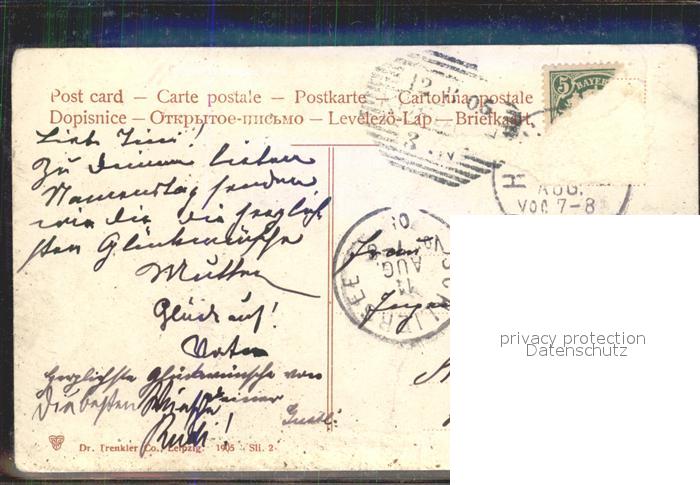 Post card — Carte postale — Postkarte — Cartolina postale
Dopisnice — Открытое-письмо — Levelező-Lap — Briefkaart
5 BAYER
12 05
3 N
AUG.
Vor. 7-8
H
SCHLIERSEE
AUG.
Zu Deinem lieben
Namenstag senden
wir Dir die herzlich
sten Glückwünsche
Mutter
Glück auf!
Vater
Herzlichste Glückwünsche von
Deiner
Gustl.
Die besten Wünsche
Rudi!
Frau
privacy protection
Datenschutz
Dr. Trenkler Co., Leipzig. 1905 Sli. 2